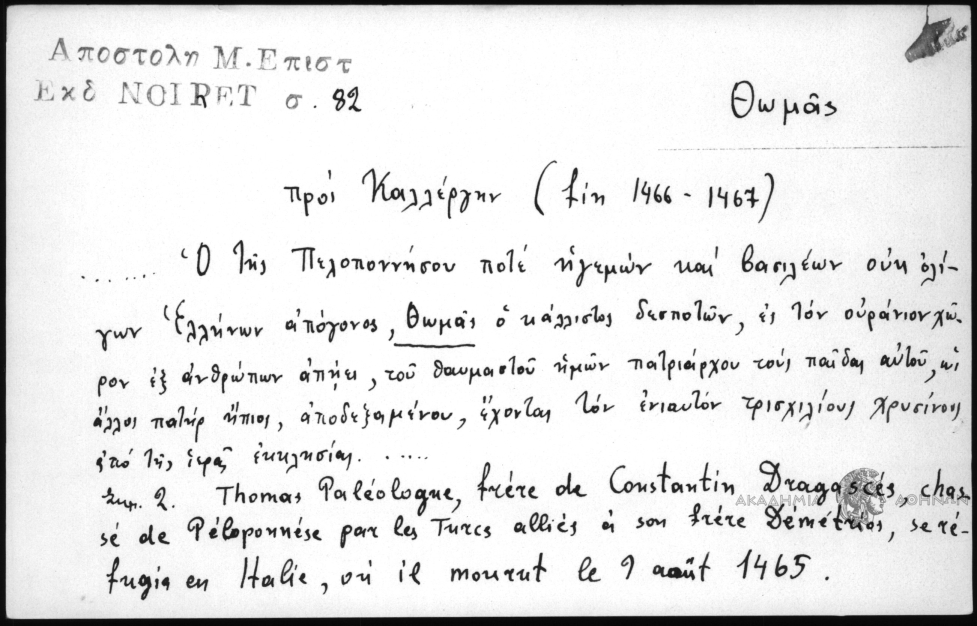 Αποστολη Μ. Επιστ
Εκδ NOIRET σ. 82
Θωμᾶς
πρὸς Καλλέργην (fin 1466 - 1467)
........ Ὁ τῆς Πελοποννήσου ποτέ ἡγεμών καί βασιλέων οὐκ ὀλί-
γων Ἑλλήνων ἀπόγονος, Θωμᾶς ὁ κάλλιστος δεσποτῶν, ἐς τόν οὐράνιον χῶ-
ρον ἐξ ἀνθρώπων ἀπῄει, τοῦ θαυμαστοῦ ἡμῶν πατριάρχου τούς παῖδας αὐτοῦ,
ἄλλος πατήρ ἤπιος, ἀποδεξαμένου, ἔχοντας τόν ἐνιαυτόν τρισχιλίους χρυσίνους
ἀπό τῆς ἱερᾶς ἐκκλησίας. .....
Σημ. 2. Thomas Paléologue, frére de Constantin Dragascés, chas
sé de Péloponnése par les Turcs alliés á son frére Démétrios, se ré-
fugia en Italie, oú il mourut le 9 août 1465.
ΑΚΑΔΗΜΙΑ ΑΘΗΝΩΝ